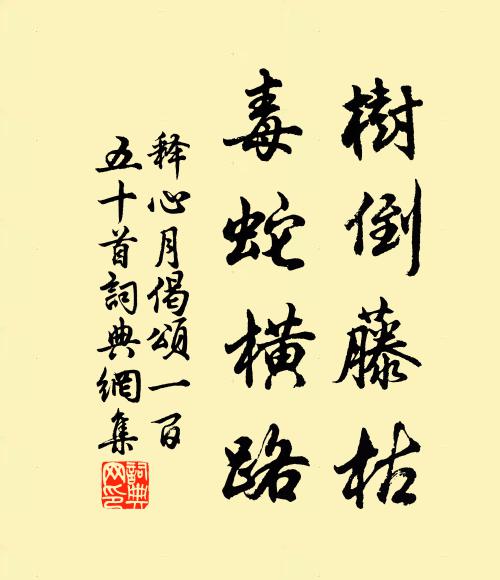 樹倒藤枯
毒蛇橫路
释心月偈頌一百
五十首詞典網集
詞典
网印